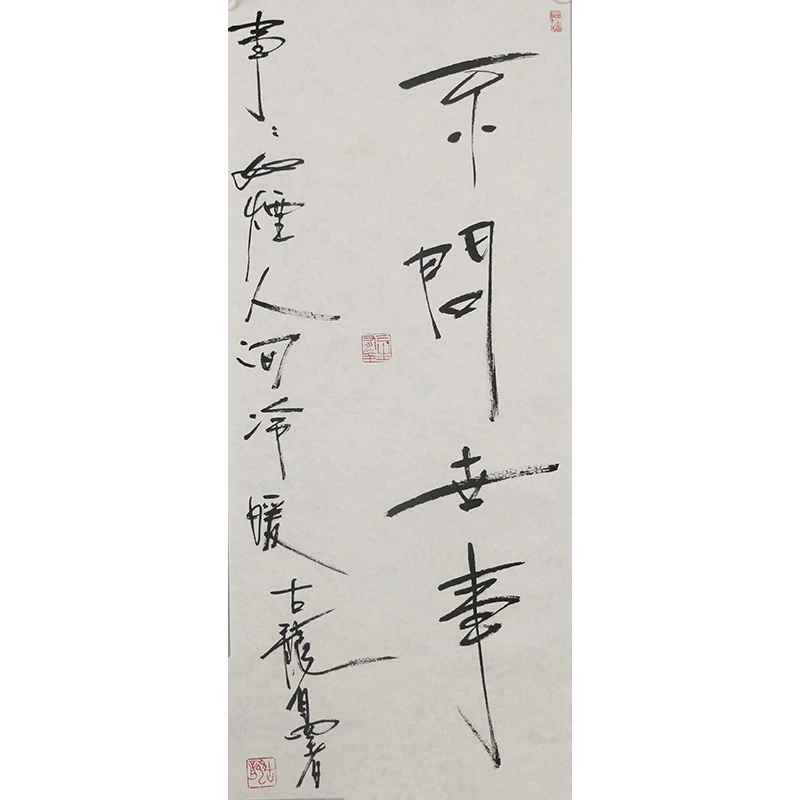 不問世事
事〻如煙人河冷暖古龍